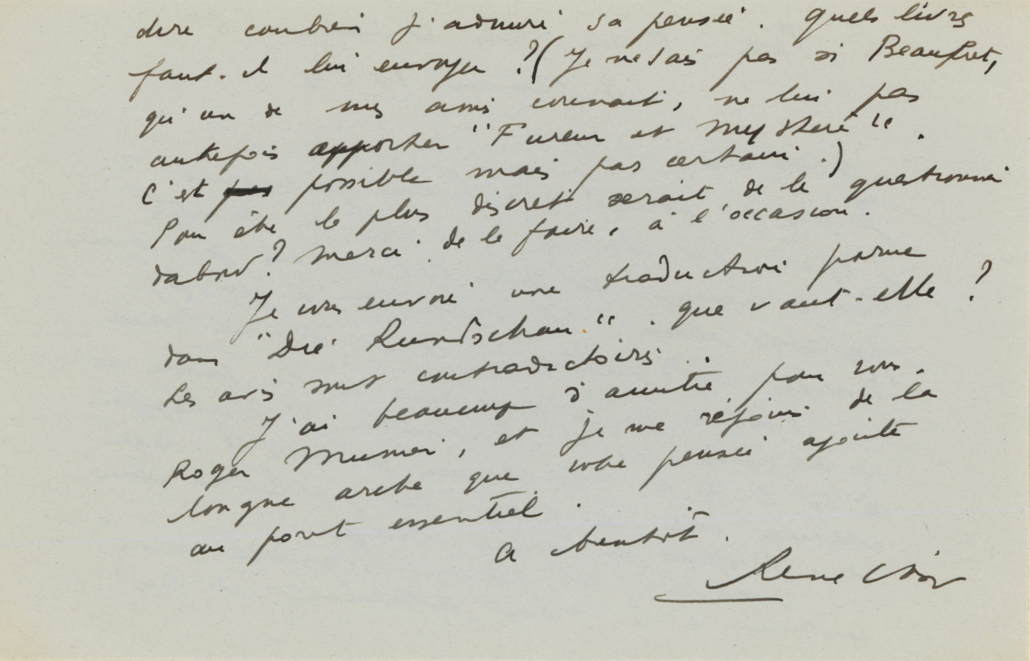 dire combien j'admire sa pensée. Quels livres
faut-il lui envoyer ? (Je ne sais pas si Beaufret,
qu'un de mes amis connait, ne lui pas
autrefois apporter "Fureur et mystère".
C'est pas possible mais pas certain.)
Peut être le plus discret serait de le questionner
d'abord ? Merci de le faire, à l'occasion.
Je vous envoie une traduction parue
dans "Die Rundschau". que vaut-elle ?
Les avis sont contradictoires.
J'ai beaucoup d'amitié pour vous.
Roger Munier, et je me réjouis de la
longue arche que votre pensée ajoute
au pont essentiel.
A bientôt.
René Char